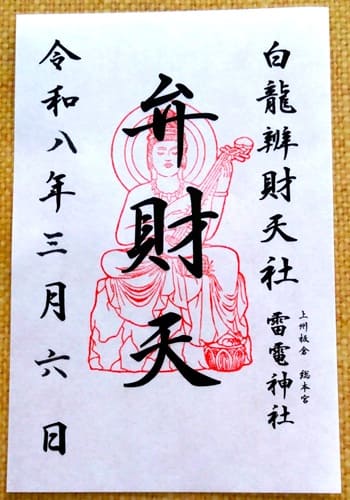 白龍辨財天社
上州板倉 総本宮
雷電神社
弁財天
令和八年三月六日